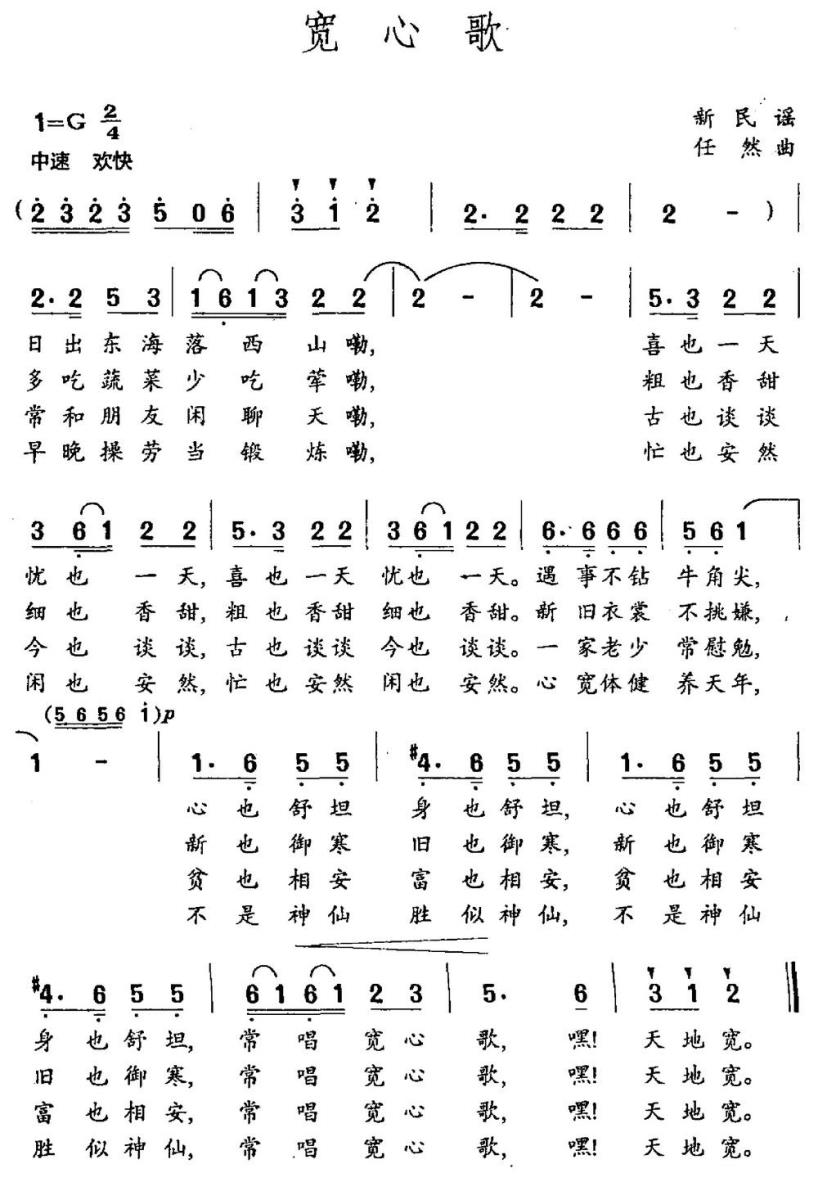 宽心歌
1=G 2/4
新民谣
中速 欢快
任然曲
(2̇3̇2̇3̇ 5̇06̇ | 3̇ 1̇ 2̇ | 2. 2 2 2 | 2 - ) |
2. 2 5 3 | 1 6̣ 1 3 2 2 | 2 - | 2 - | 5. 3 2 2 |
日出东海落西山嘞, 喜也一天
多吃蔬菜少吃荤嘞, 粗也香甜
常和朋友闲聊天嘞, 古也谈谈
早晚操劳当锻炼嘞, 忙也安然
3 6̣1 2 2 | 5. 3 2 2 | 3 6̣1 2 2 | 6̣. 6̣ 6̣ 6̣ | 5̣ 6̣ 1 |
忧也一天,喜也一天忧也一天。遇事不钻牛角尖,
细也香甜,粗也香甜细也香甜。新旧衣裳不挑嫌,
今也谈谈,古也谈谈今也谈谈。一家老少常慰勉,
闲也安然,忙也安然闲也安然。心宽体健养天年,
(5 6 5 6 1̇)p
1 - | 1. 6̣ 5̣ 5̣ | #4̣. 6̣ 5̣ 5̣ | 1. 6̣ 5̣ 5̣ |
心也舒坦身也舒坦,心也舒坦
新也御寒旧也御寒,新也御寒
贫也相安富也相安,贫也相安
不是神仙胜似神仙,不是神仙
#4̣. 6̣ 5̣ 5̣ | 6̣ 1 6̣ 1 2 3 | 5. 6 | 3 1 2 ‖
身也舒坦,常唱宽心歌,嘿!天地宽。
旧也御寒,常唱宽心歌,嘿!天地宽。
富也相安,常唱宽心歌,嘿!天地宽。
胜似神仙,常唱宽心歌,嘿!天地宽。